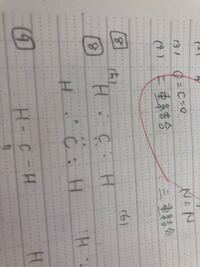 (2)
(3) O=C=O
(4) 二重結合 三重結合
8
H : C : H
8
H : C : H
H :
9
H - C - H
H